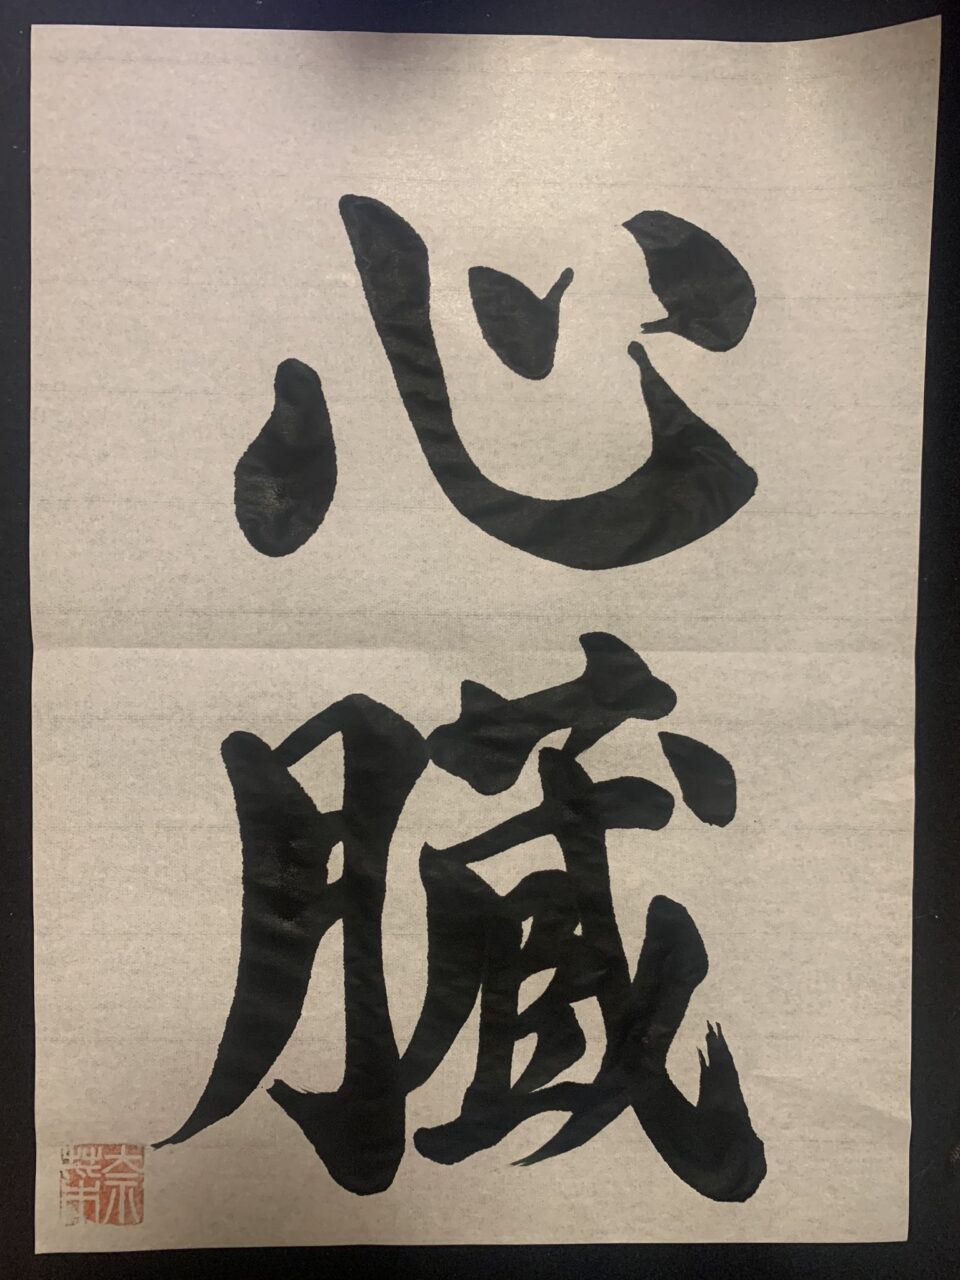 心臓
奈